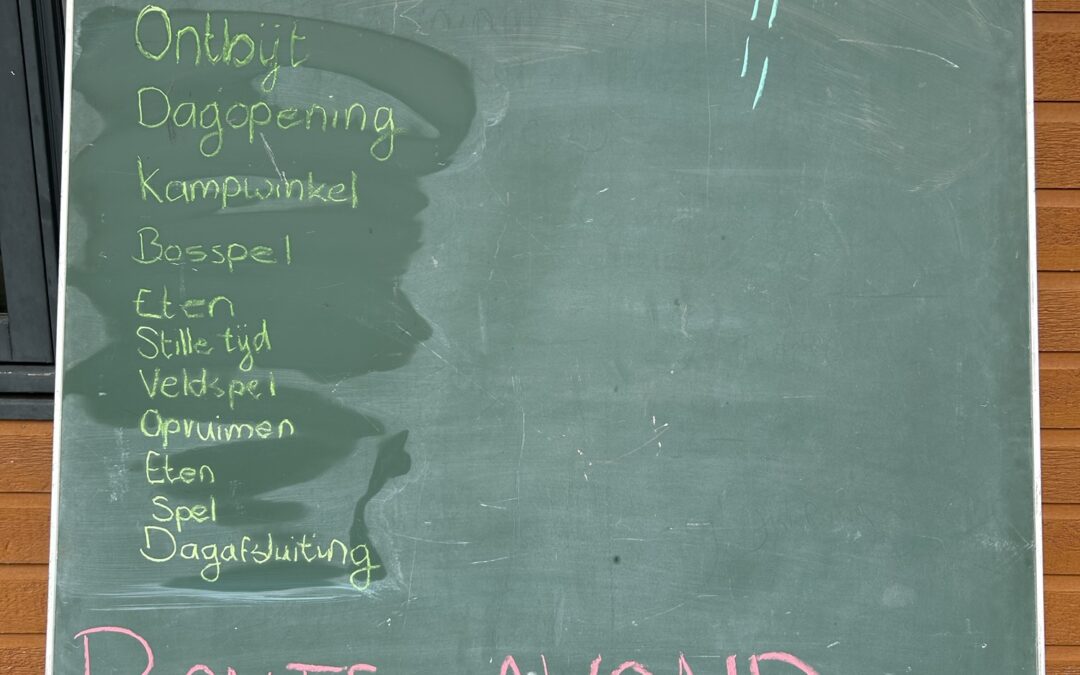 Ontbijt
Dagopening
Kampwinkel
Bosspel
Eten
Stille tijd
Veldspel
Opruimen
Eten
Spel
Dagafsluiting
BONTE AVOND